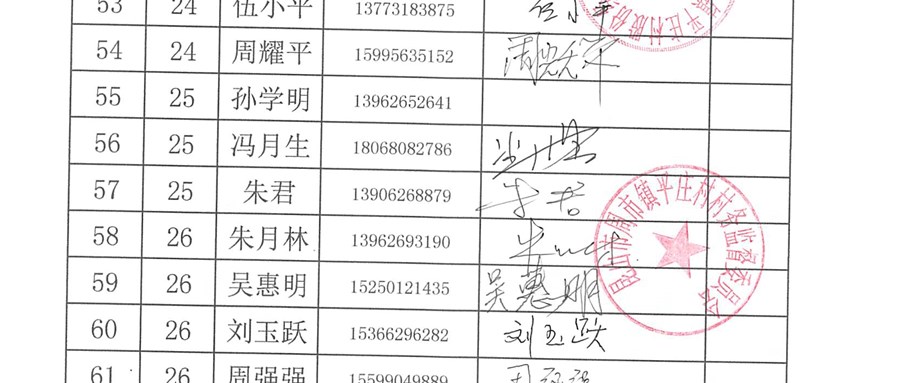 53 24 伍小平 13773183875 伍小平
54 24 周耀平 15995635152 周耀平
55 25 孙学明 13962652641
56 25 冯月生 18068082786
57 25 朱君 13906268879 朱君
58 26 朱月林 13962693190
59 26 吴惠明 15250121435 吴惠明
60 26 刘玉跃 15366296282 刘玉跃
61 26 周强强 15599049889
平庄村股份
昆山市周市镇平庄村村务监督委员会